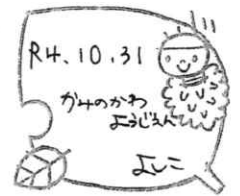 R4.10.31
かみのかわ
ようじえん
よしこ